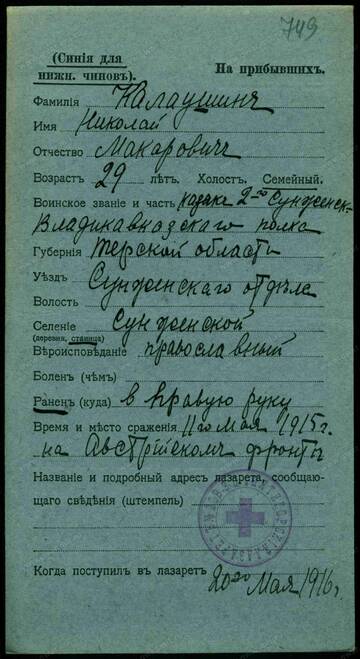 749
(Синія для
нижн. чиновъ).
На прибывшихъ.
Фамилія Калаушинъ
Имя Николай
Отчество Макаровичъ
Возрастъ 29 лѣтъ. Холост. Семейный.
Воинское званіе и часть казакъ 2-го Сунженско-
Владикавказскаго полка
Губернія Терской области
Уѣздъ Сунженскаго отдѣла
Волость
Селеніе Сунженской
(деревня, станица)
Вѣроисповѣданіе православный
Боленъ (чѣмъ)
Раненъ (куда) в правую руку
Время и мѣсто сраженія 11го мая 1915г.
на Австрійскомъ фронтѣ
Названіе и подробный адресъ лазарета, сообщаю-
щаго свѣдѣнія (штемпель)
Когда поступилъ въ лазаретъ 20го Мая 1916г.